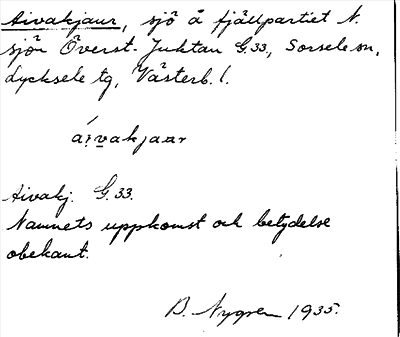 Aivakjaur, sjö å fjällpartiet N.
sjön Överst-Juktan G.33, Sorsele sn,
Lycksele tg, Västerb. l.
ái̯vakjaur
Aivakj. G.33.
Namnets uppkomst och betydelse
obekant.
B. Nygren 1935.